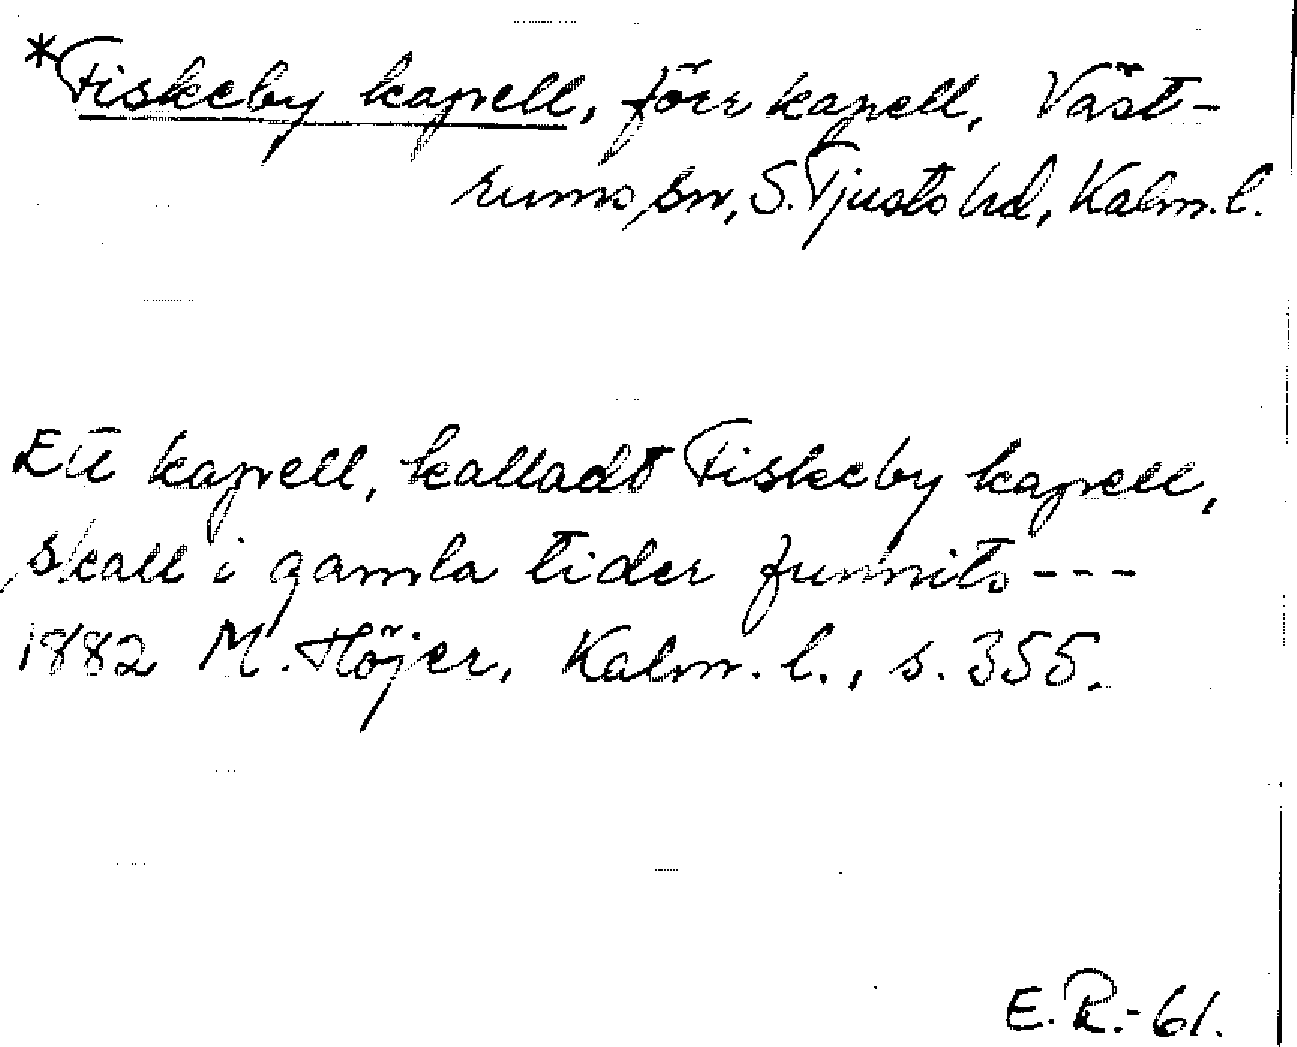 *Fiskeby kapell, förr kapell, Väst-
rums sn, S. Tjusts hd, Kalm. l.
Ett kapell, kalladt Fiskeby kapell,
skall i gamla tider funnits ---
1882 M. Höjer, Kalm. l., s. 355.
E. R. -61.